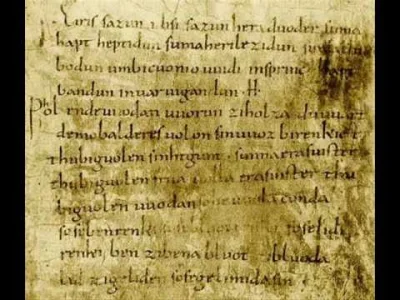 Eiris sazun idisi sazun hera duoder suma
hapt heptidun suma herilezidun suma clu
bodun umbicuonio uuidi insprinc hapt
bandun inuar uigandun· H·
Phol endeuuodan uuorun zi holza du uuart
demobalderes uolon sinuuoz birenkict
thubiguolen sinhtgunt· sunna era suister
thubiguolen friia uolla era suister thu
biguolen uuodan so he uuola conda
sosebenrenki sose bluotrenki soselidi
renki ben zibena bluot zi bluoda
lid zigeliden sosegelimida sin